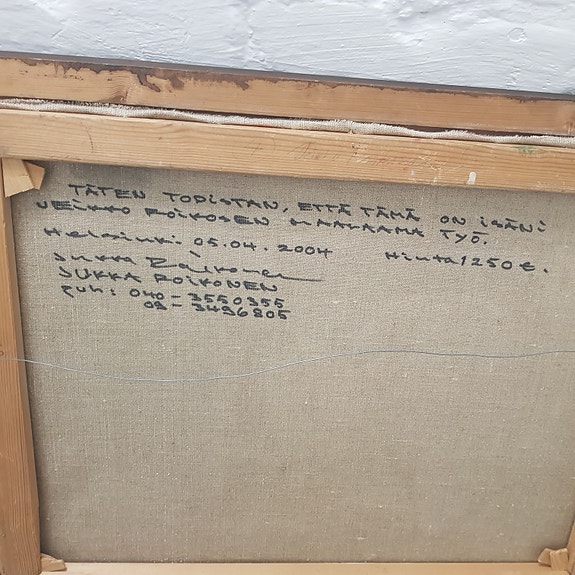 TÄTEN TODISTAN, ETTÄ TÄMÄ ON ISÄNI
VEIKKO ROIKOSEN MAALAAMA TYÖ.
Helsinki 05.04.2004 Hinta 1250 €.
Jukka Roikonen
JUKKA ROIKONEN
puh: 040-3550355
09-3496805